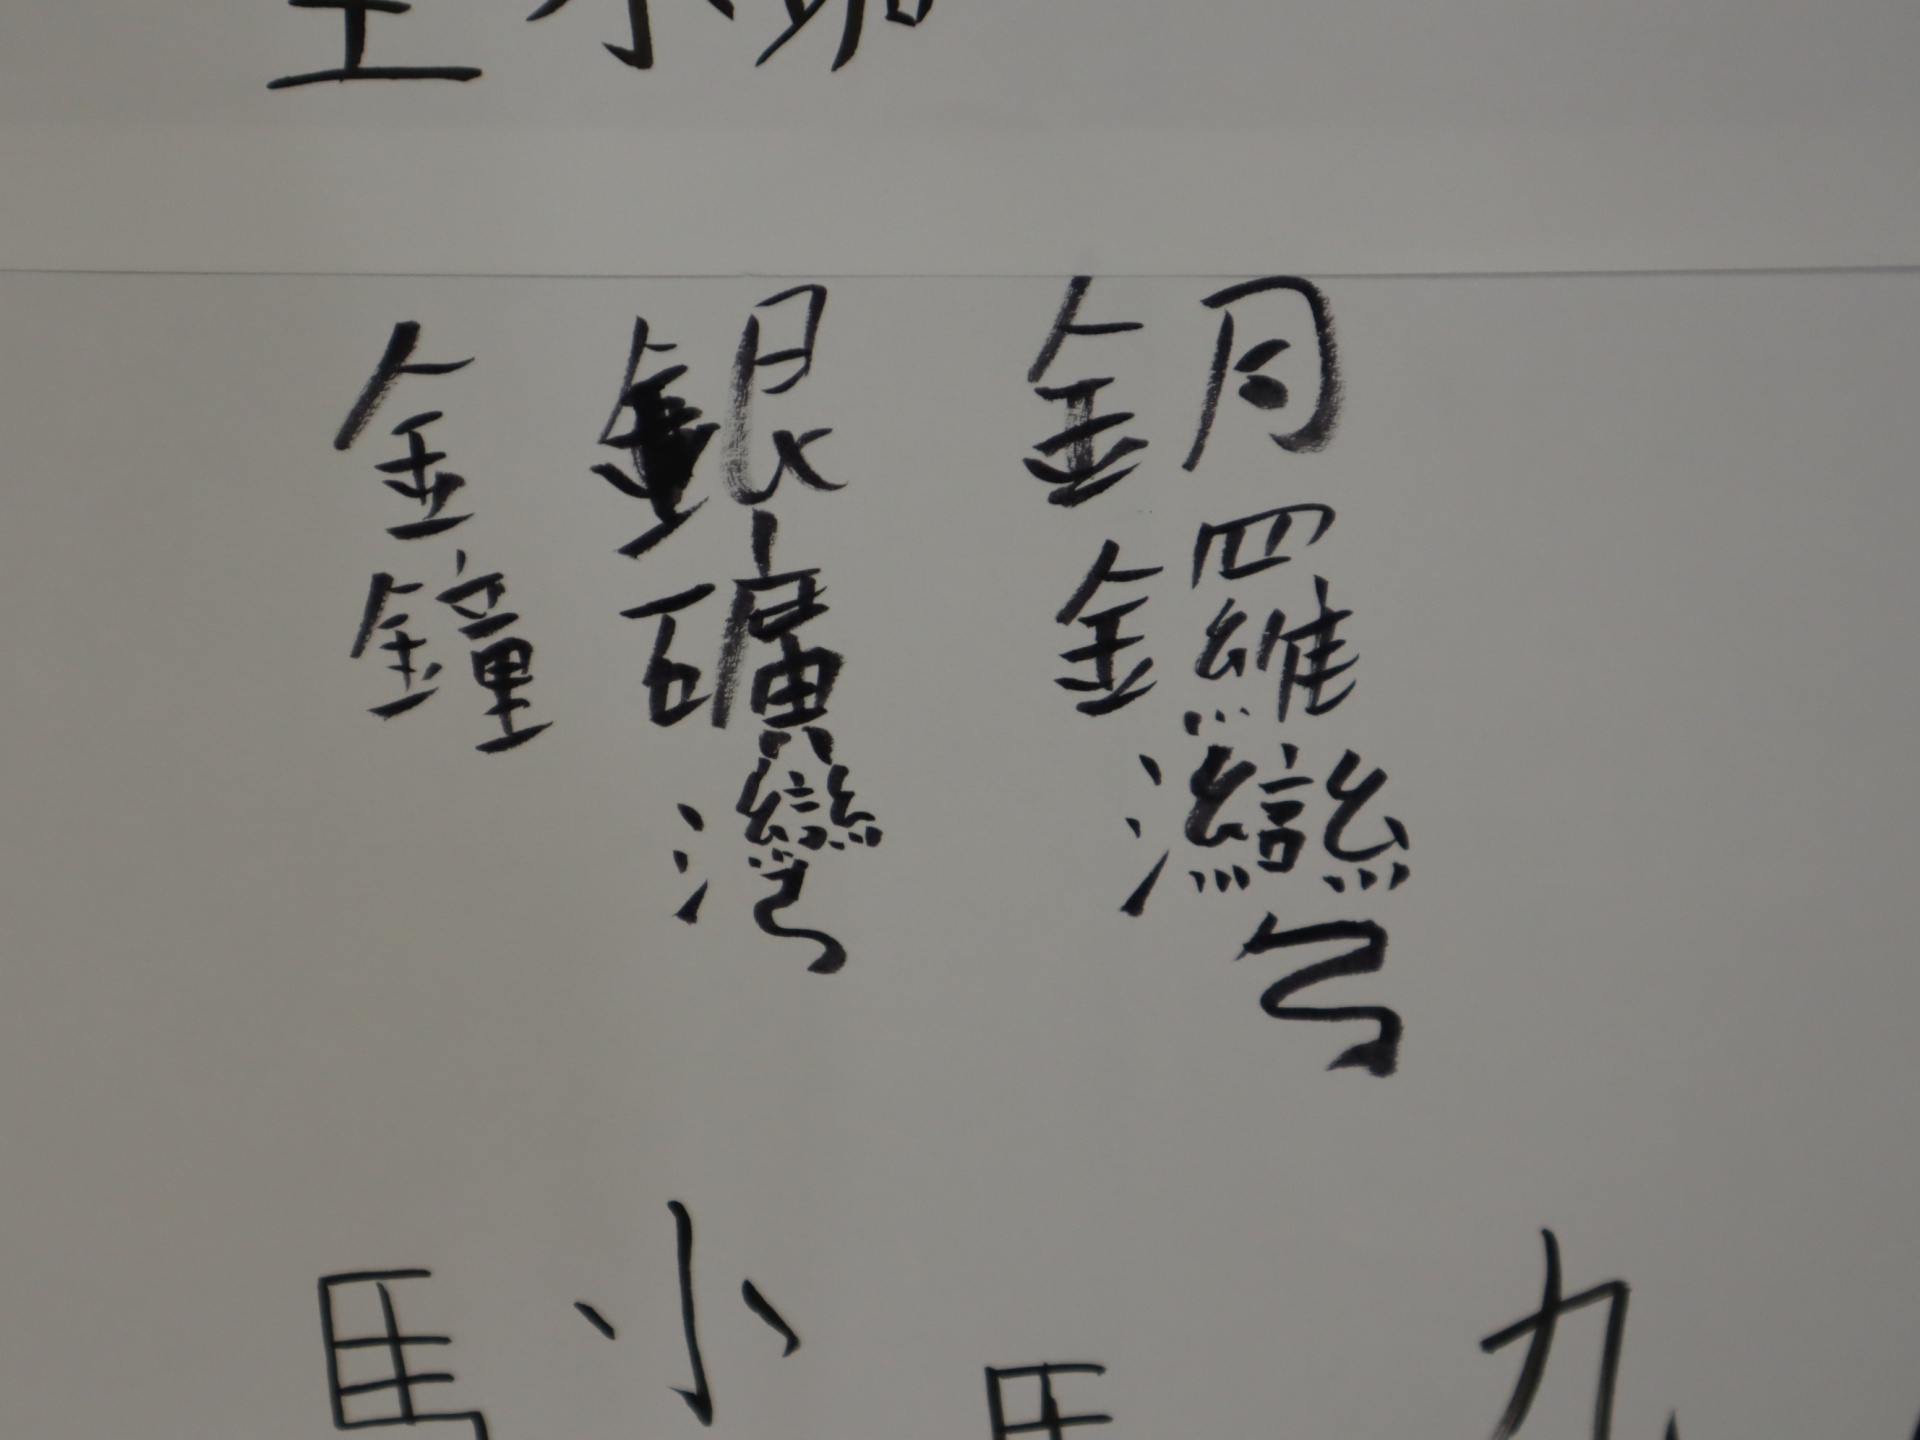 金鐘
銀礦灣
銅鑼灣
馬小馬